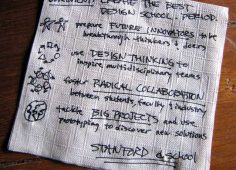 CREATE THE BEST
DESIGN SCHOOL. PERIOD.
prepare FUTURE INNOVATORS to be
breakthrough thinkers & doers
use DESIGN THINKING to
inspire multidisciplinary teams
foster RADICAL COLLABORATION
between students, faculty & industry
tackle BIG PROJECTS and use
prototyping to discover new solutions
STANFORD d.school